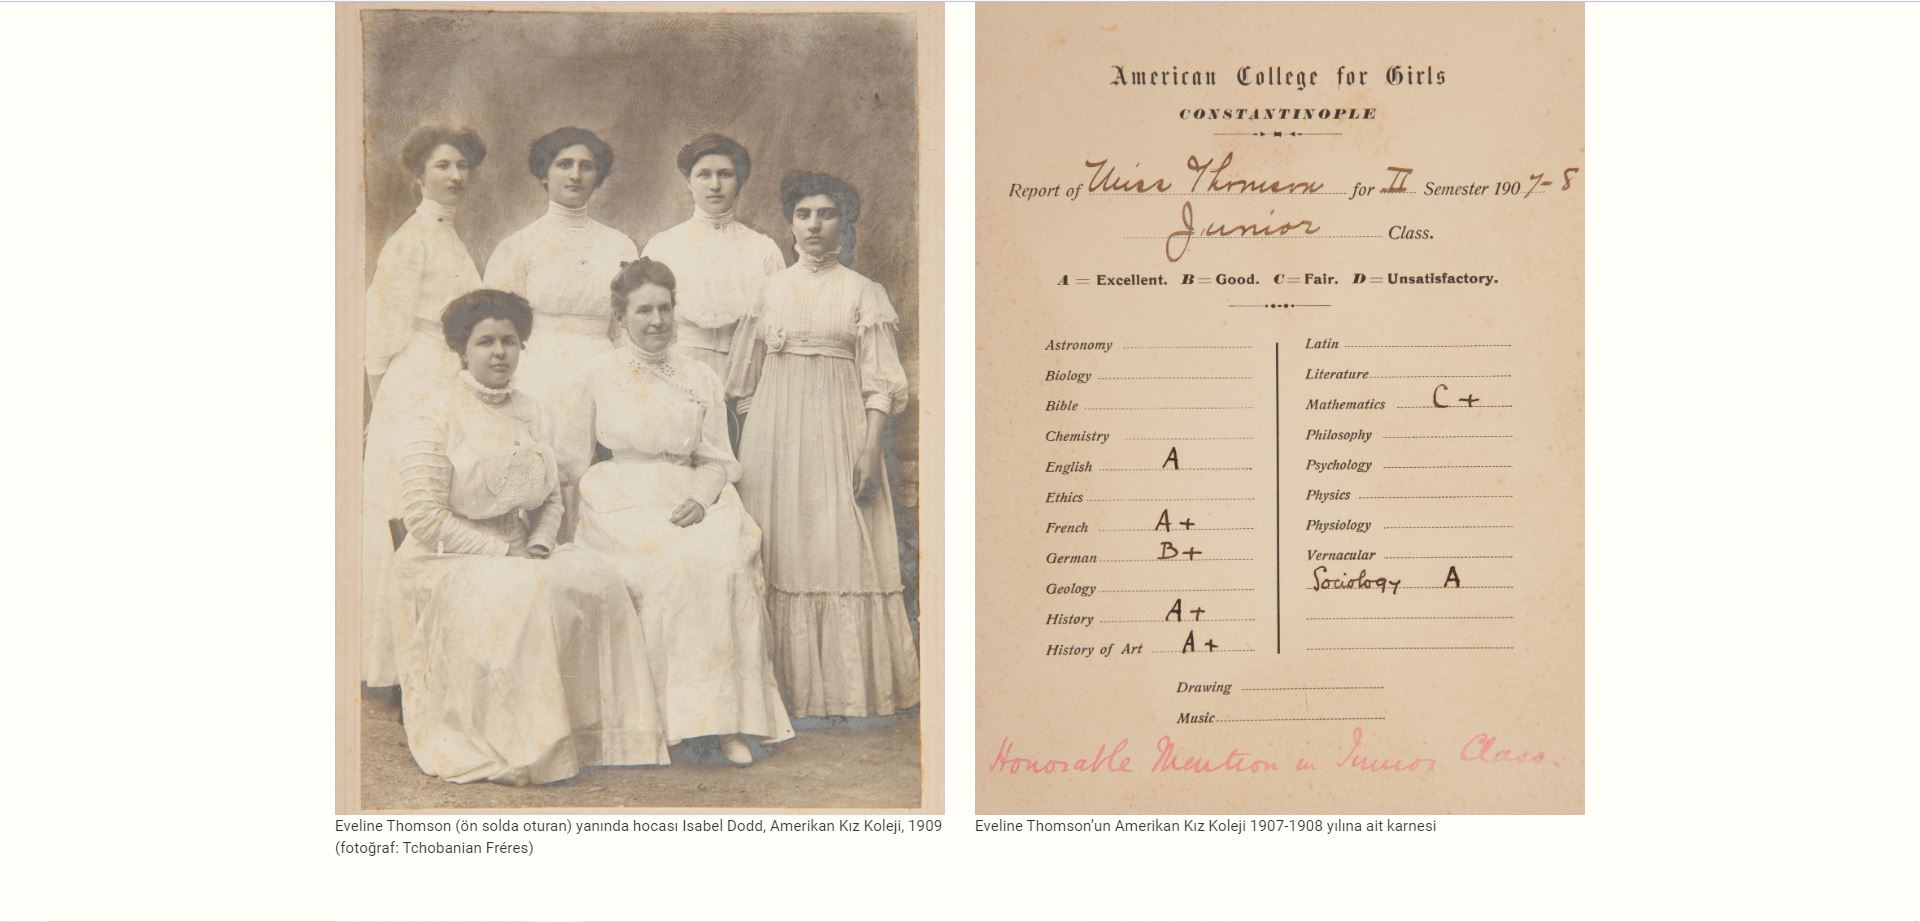 Eveline Thomson (ön solda oturan) yanında hocası Isabel Dodd, Amerikan Kız Koleji, 1909
(fotoğraf: Tchobanian Fréres)
American College for Girls
CONSTANTINOPLE
Report of Miss Thomson for II Semester 1907-8
Junior Class.
A = Excellent. B = Good. C = Fair. D = Unsatisfactory.
Astronomy
Biology
Bible
Chemistry
English A
Ethics
French A+
German B+
Geology
History A+
History of Art A+
Latin
Literature
Mathematics C+
Philosophy
Psychology
Physics
Physiology
Vernacular
Sociology A
Drawing
Music
Honorable Mention in Junior Class.
Eveline Thomson’un Amerikan Kız Koleji 1907-1908 yılına ait karnesi